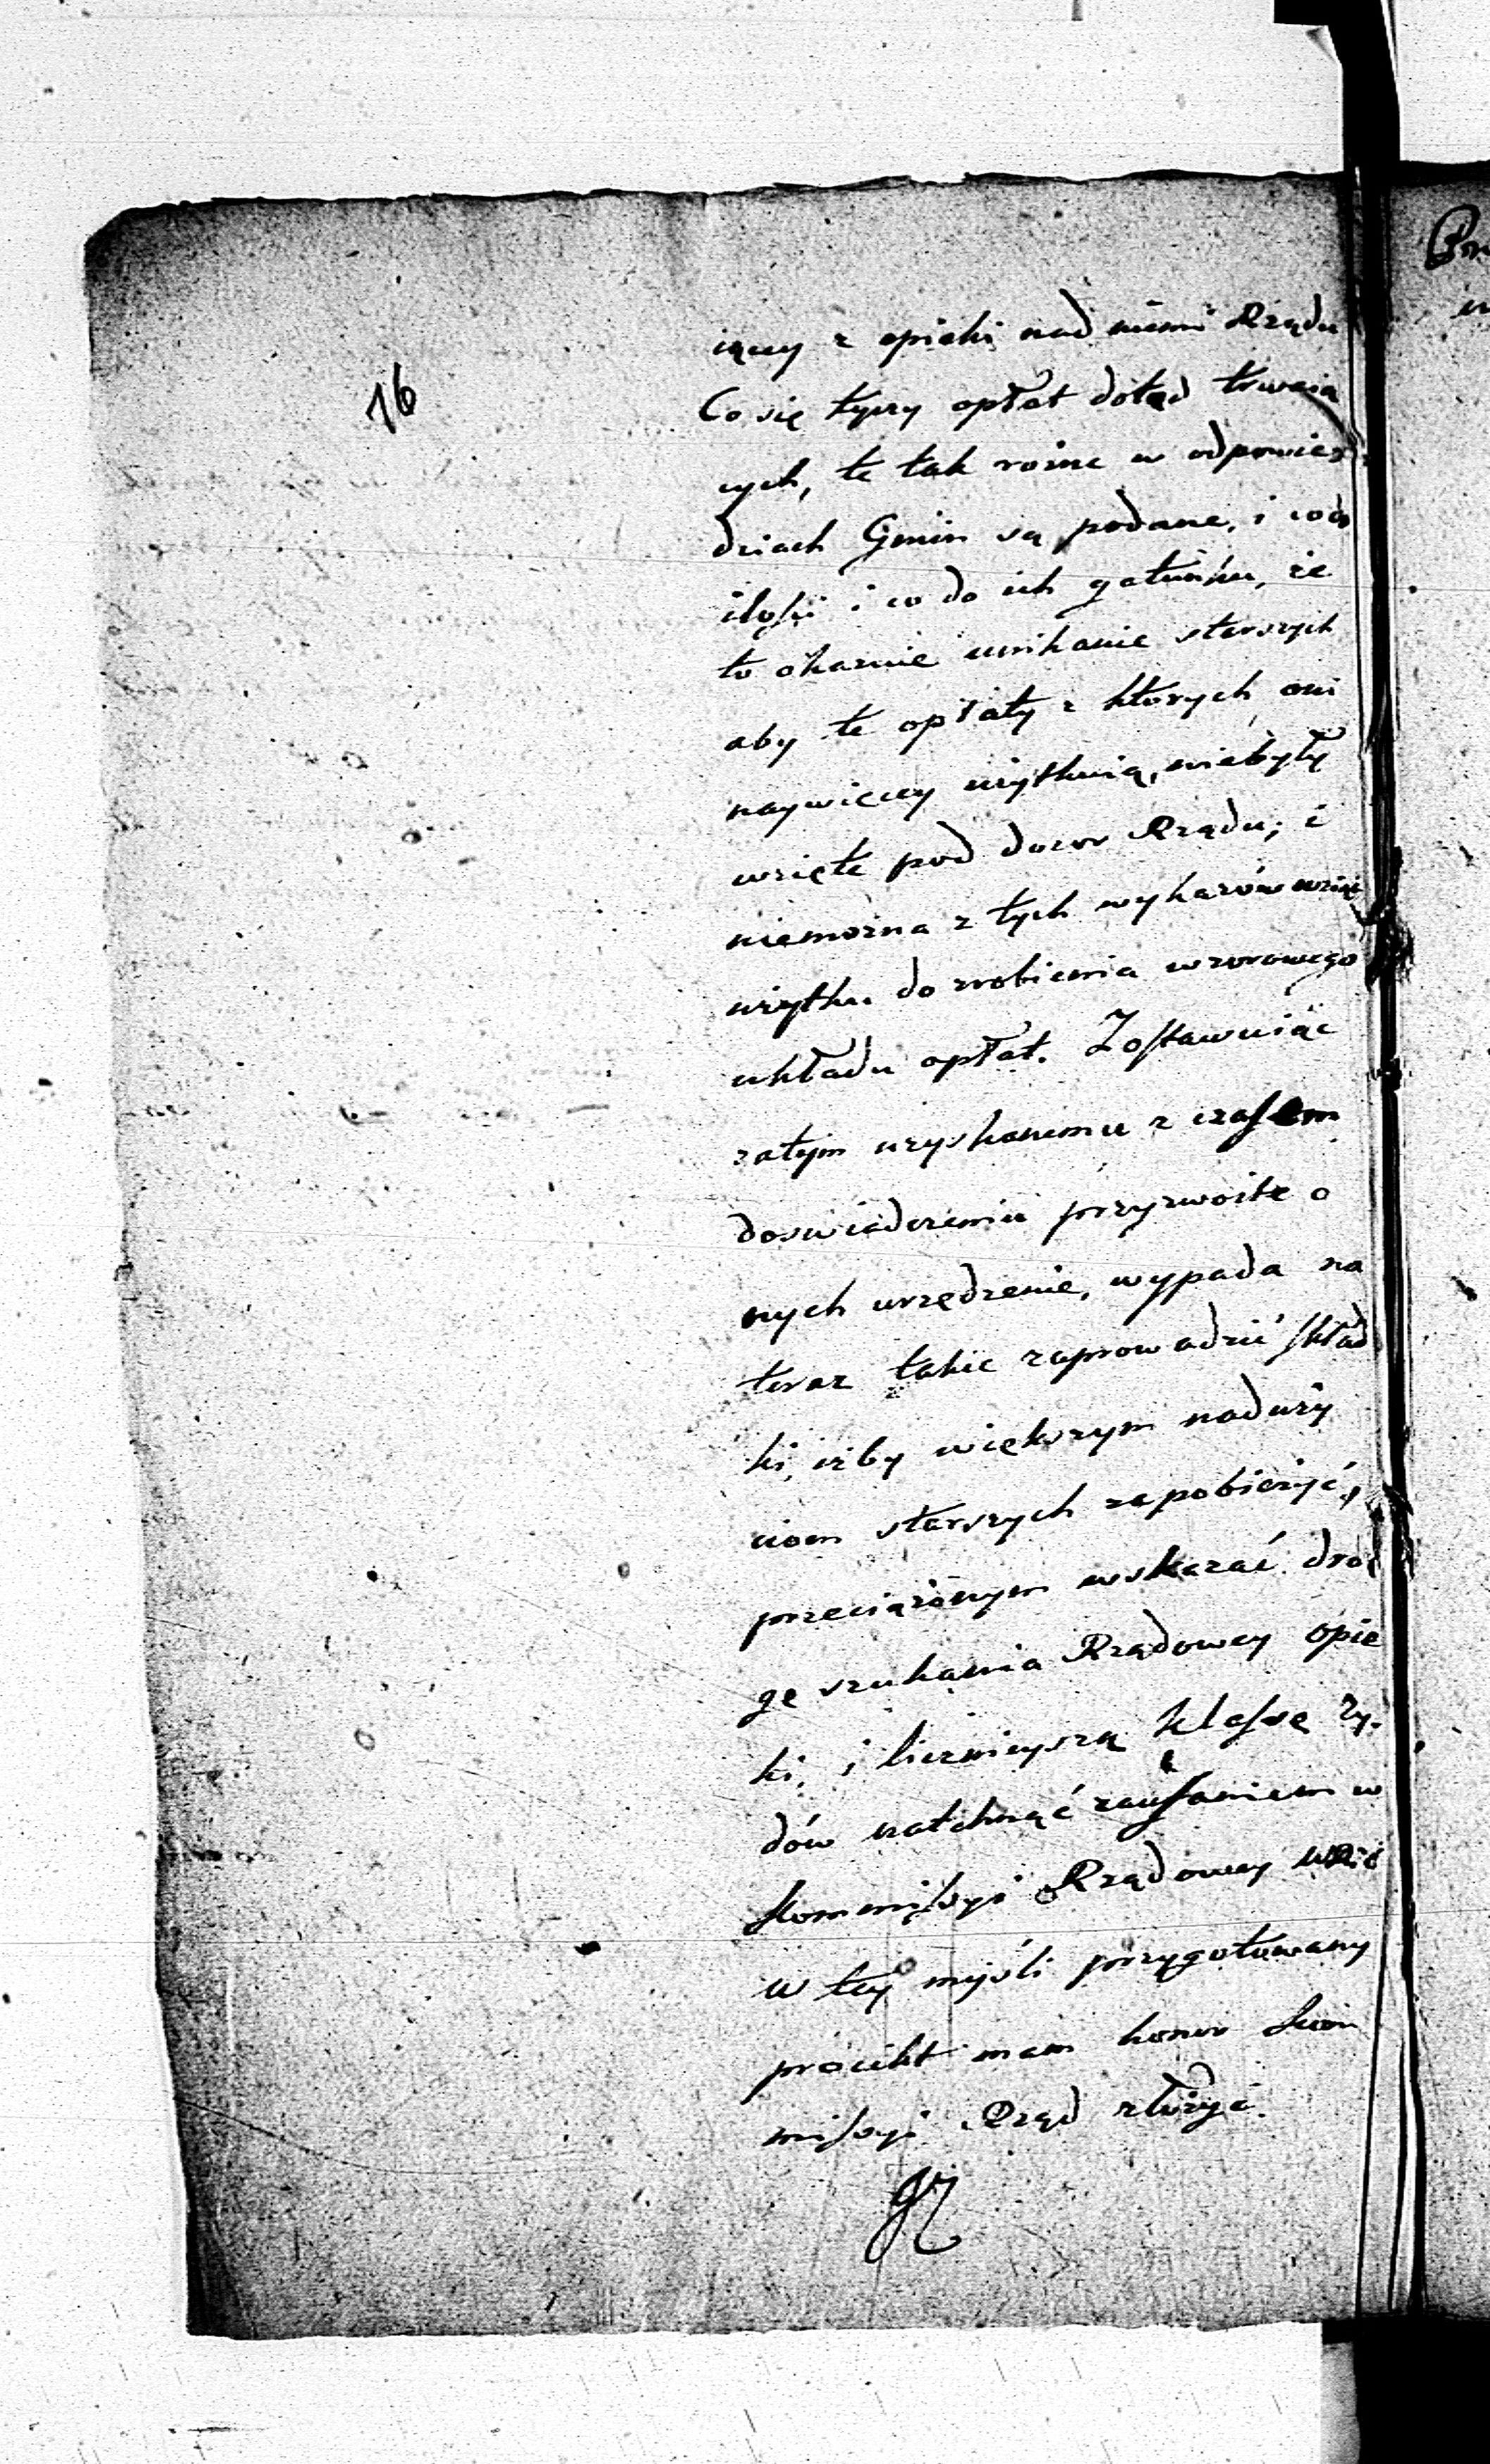 16
iącey z opieki nad niemi Rządu
Co się tyczy opłat dotąd trwaią
cych, te tak rożne w odpowie
dziach Gmin są podane, i co do
ilości i co do ich gatunku, że
to okaznie unikanie starszych
aby te opłaty z których oni
naywięcey użytkuią, niebyły
wzięte pod dozor Rządu; i
niemożna z tych wykazów wziąć
użytku do zrobienia wzorowego
układu opłat. Zostawuiąc
zatym uzyskanemu z czasem
doswiadczeniu przyzwoite o
nych urzędzenie, wypada na
teraz takie zaprowadzić skład
ki, iżby większym naduży
ciom starszych zapobieżyć,
przeciążonym wskazać dro
gę szukania Rządowey opie
ki, i licznieyszą klassę Ży
dów natchnąć zaufaniem w
Kommissyi Rządowey
w tey myśli przygotowany
proiekt mam honor Kom
missyi Rząd złożyć.